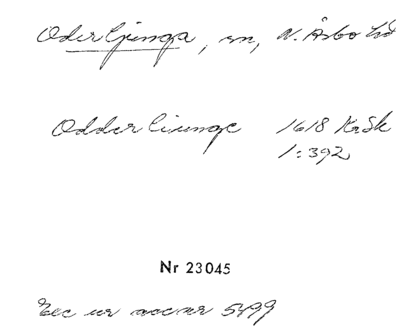 Oderljunga, sn, N. Åsbo hd
Odderliunge 1618 KrSk
1:392
Nr 23045
Exc ur acc nr 5499